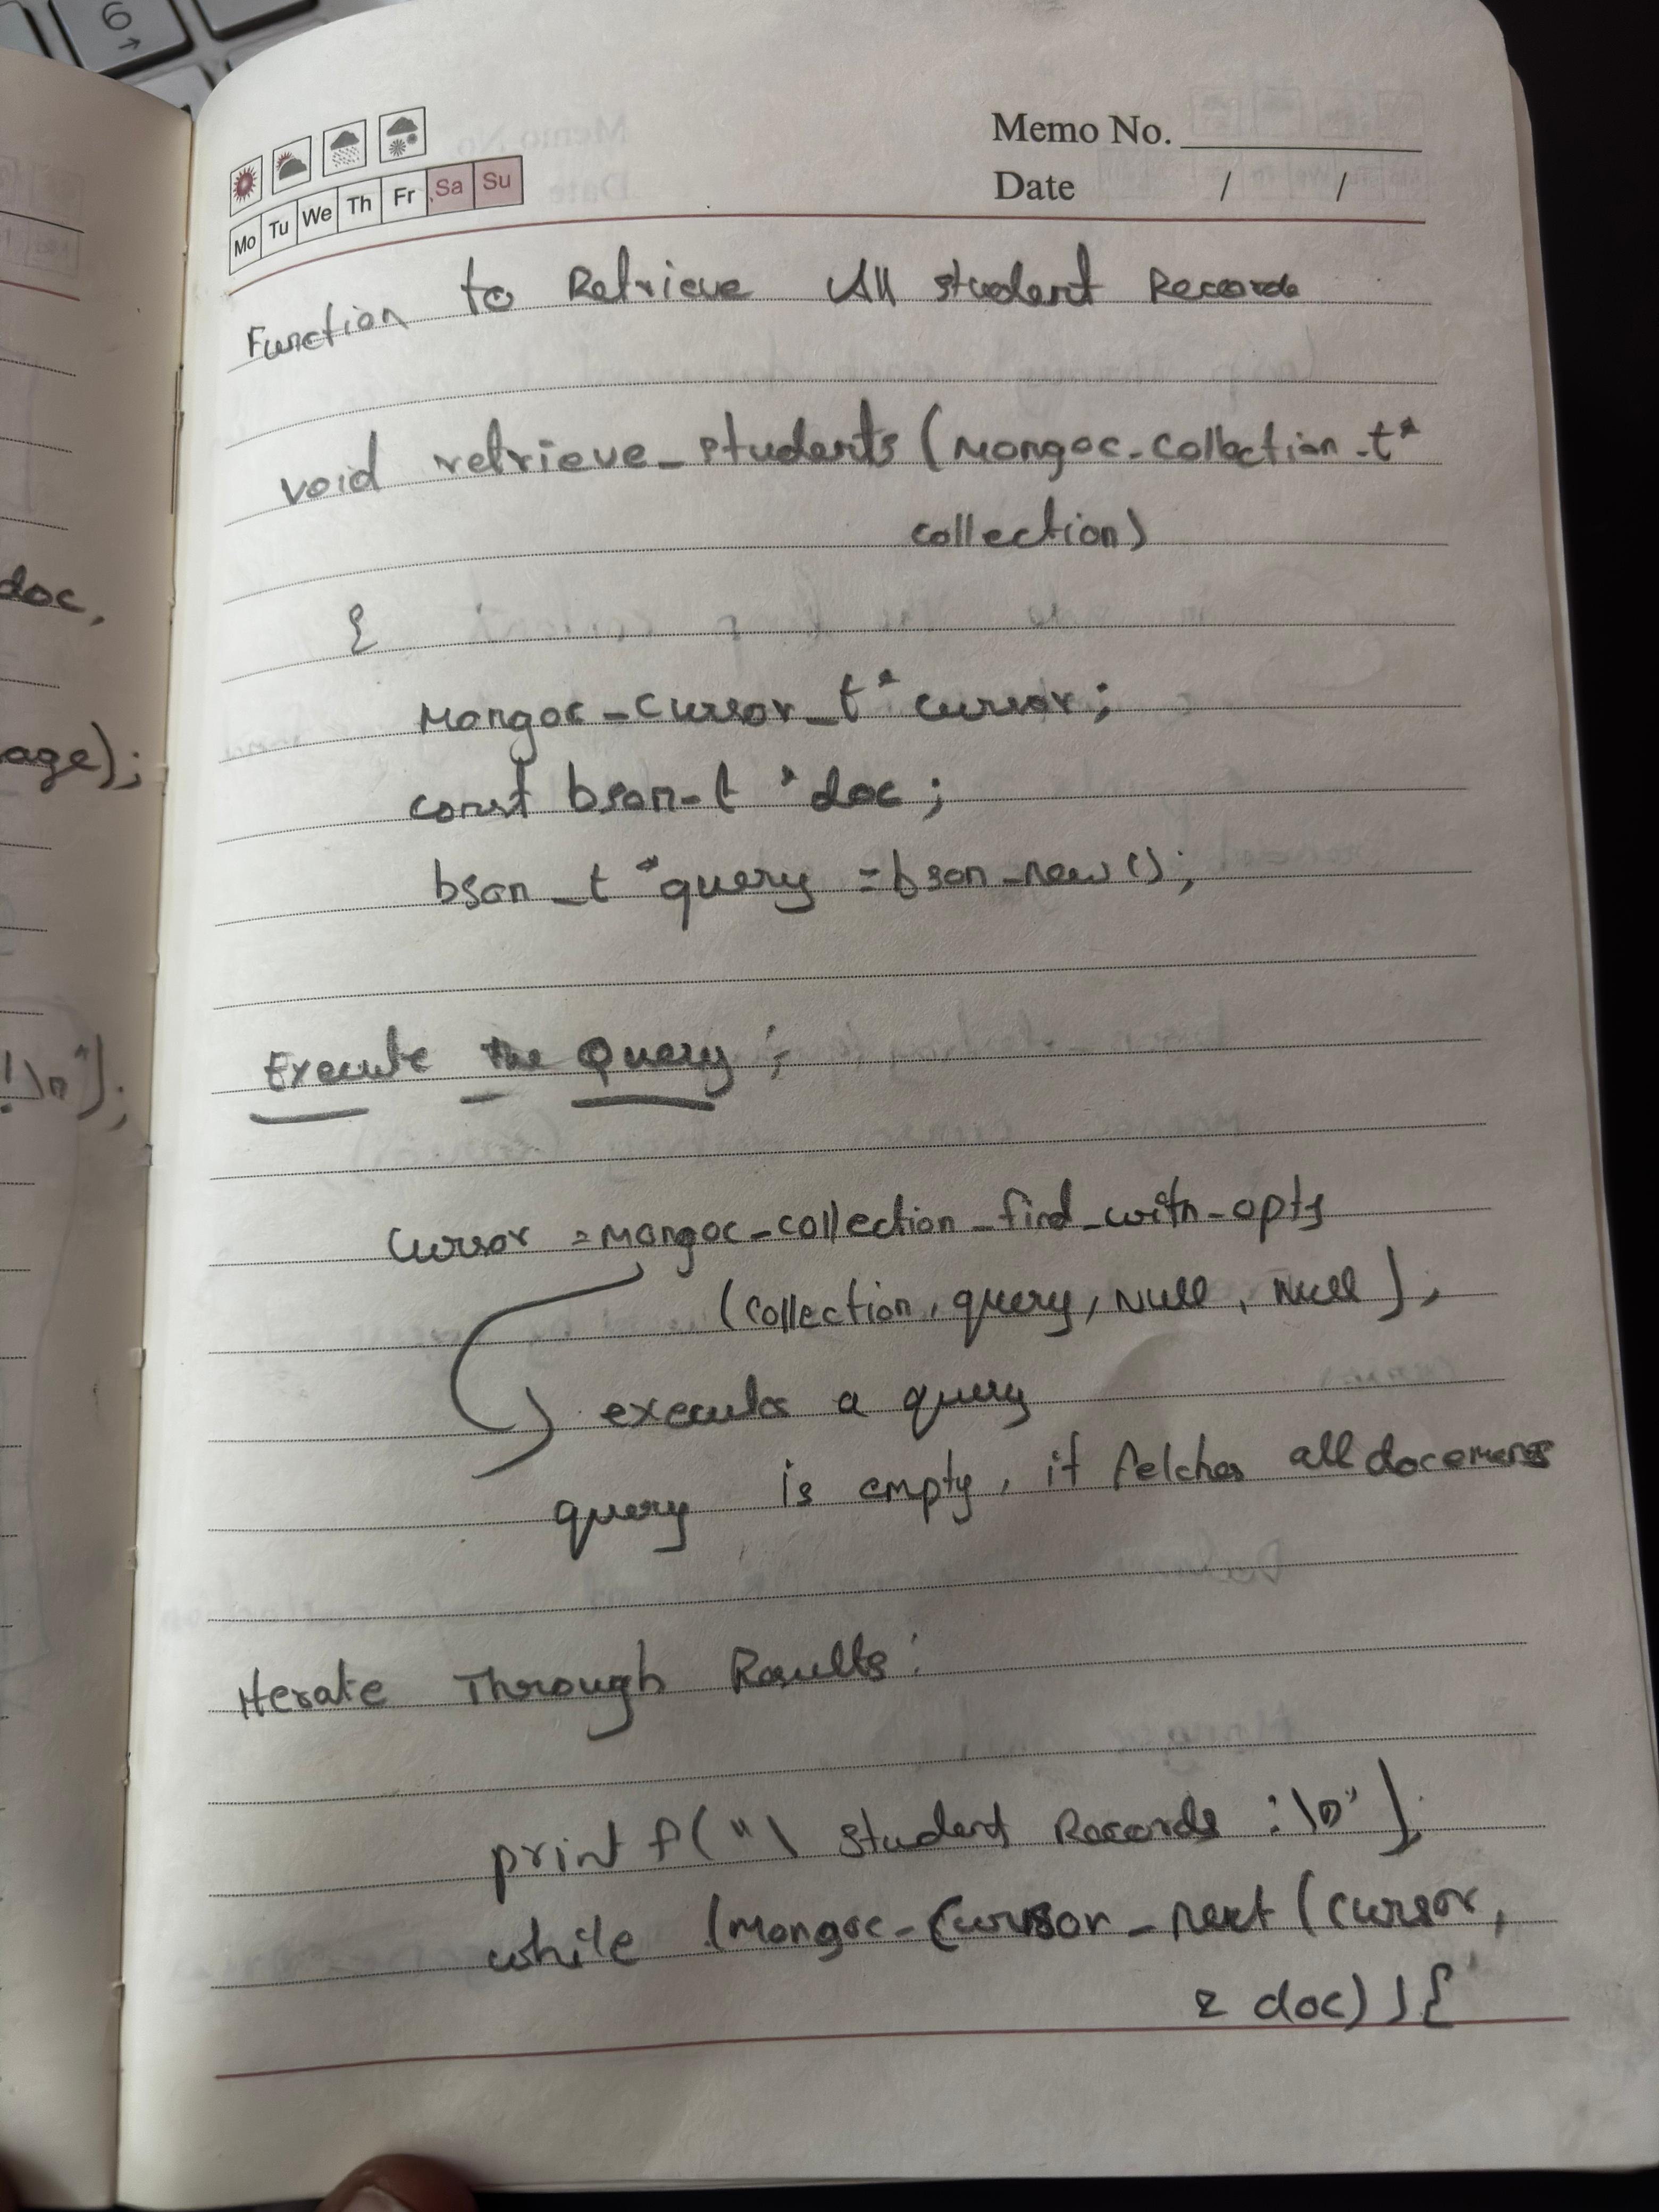 6
Memo No.
Date / /
Mo Tu We Th Fr Sa Su
Function to Retrieve All student Records
void retrieve_students (Mongoc-collection-t*
collection)
{
Mongoc-cursor_t* cursor;
const bson-t *doc;
bson_t *query = bson-new();
Execute the Query:
Cursor = mongoc-collection-find-with-opts
(collection, query, Null, Null);
executes a query
query is empty, it fetches all documents
Iterate Through Results:
printf("\ student Records :\n");
while (Mongoc-Cursor-next (cursor,
& doc)){
doc,
age);
!\n");